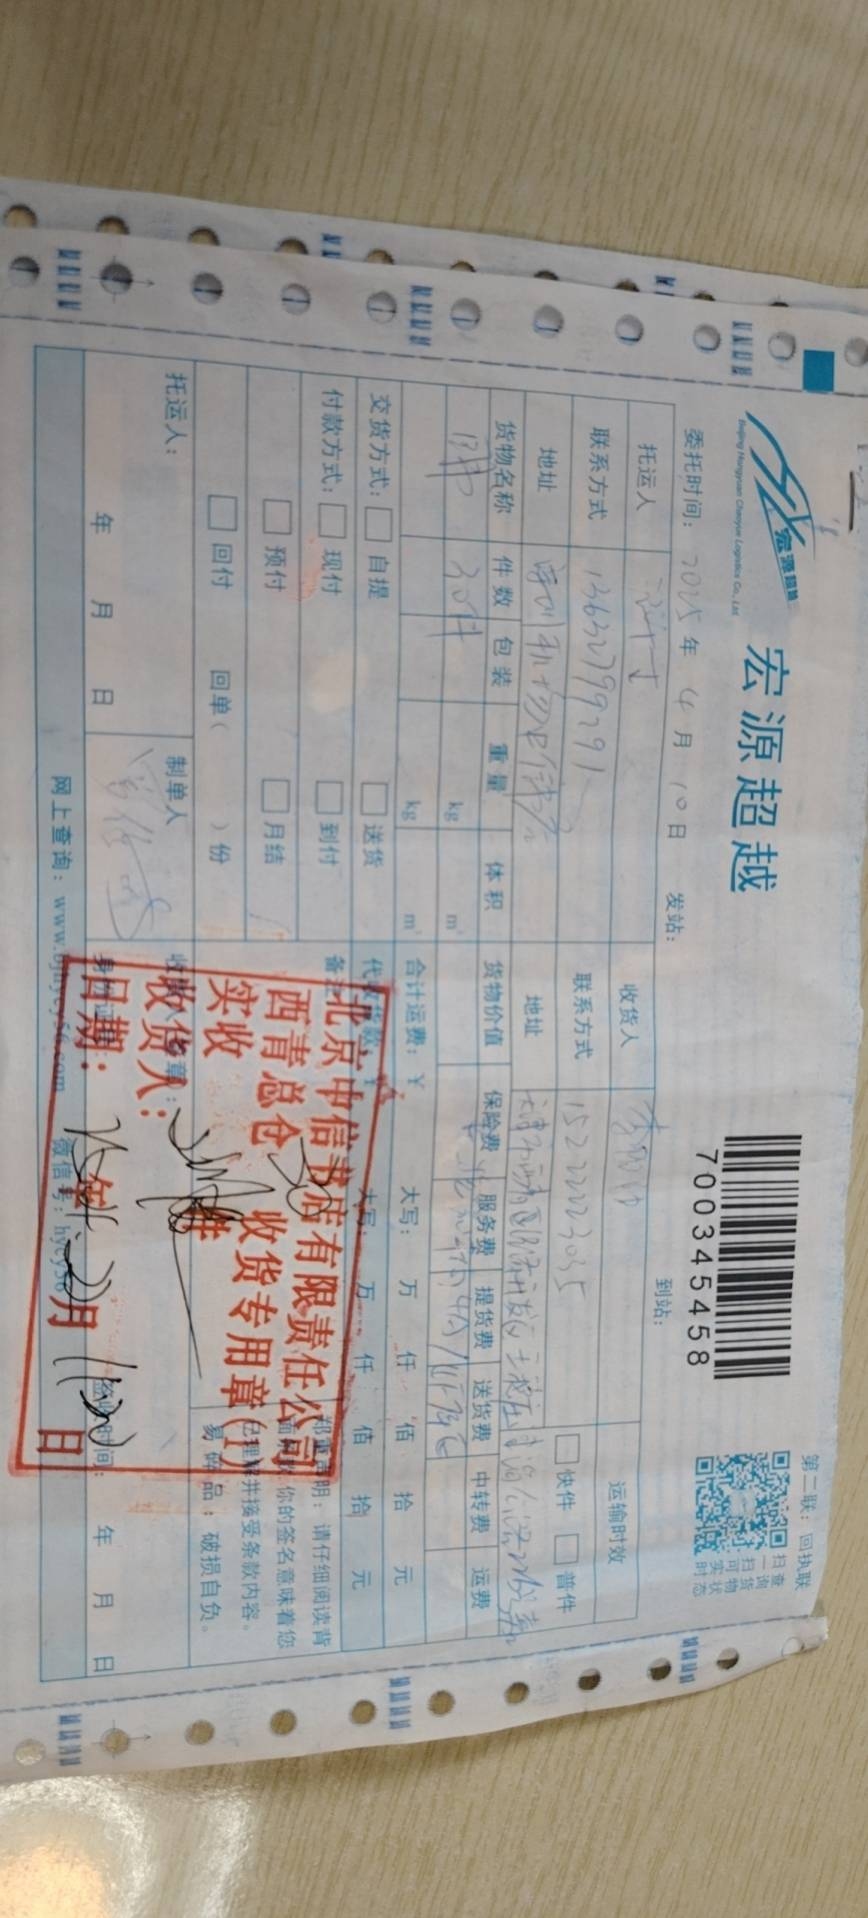 宏源超越
Beijing Hongyuan Chaoyue Logistics Co., Ltd.
宏源超越
7003454 58
第二联：回执联
扫一扫可实时
查询货物状态
委托时间：2025年4月10日 发站： 到站：
托运人 收货人 运输时效
联系方式 13632799291 联系方式 15222223035 快件 普件
地址 地址
货物名称 件数 包装 重量 体积 货物价值 保险费 服务费 提货费 送货费 中转费 运费
30件 kg m³
kg m³ 合计运费：¥ 大写： 万 仟 佰 拾 元
交货方式： 自提 送货 代收货款：¥ 大写： 万 仟 佰 拾 元
付款方式： 现付 到付 备注
预付 月结
回付 回单（ ）份
郑重声明：请仔细阅读背
你的签名意味着您
已理解并接受条款内容。
易碎品：破损自负。
托运人： 制单人
年 月 日 签收时间： 年 月 日
网上查询：www.bjhycy56.com 微信号：hycy56
北京中信书店有限责任公司
西青总仓 收货专用章(1)
实收 30 件
收货人：
日期： 年 月 日